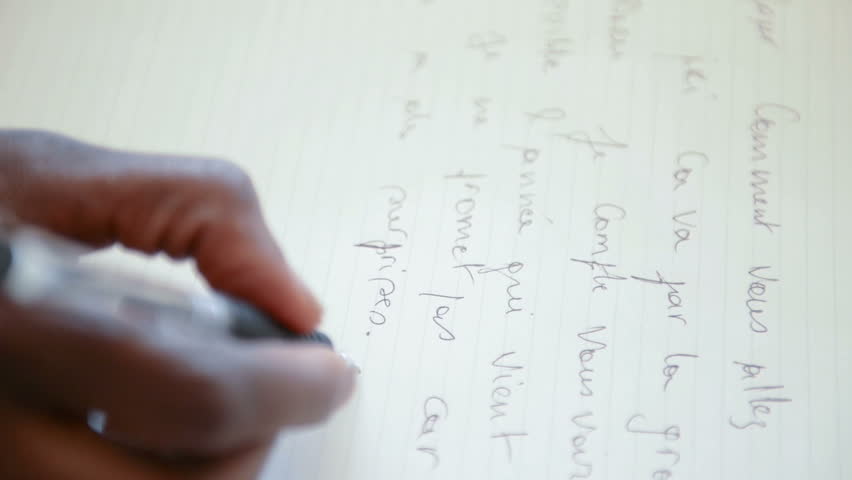 Comment vous allez
ici Ca va par la gra
Je Compte Vous voir
possible l'année qui vient
Je ne promet pas car
a des surprises.